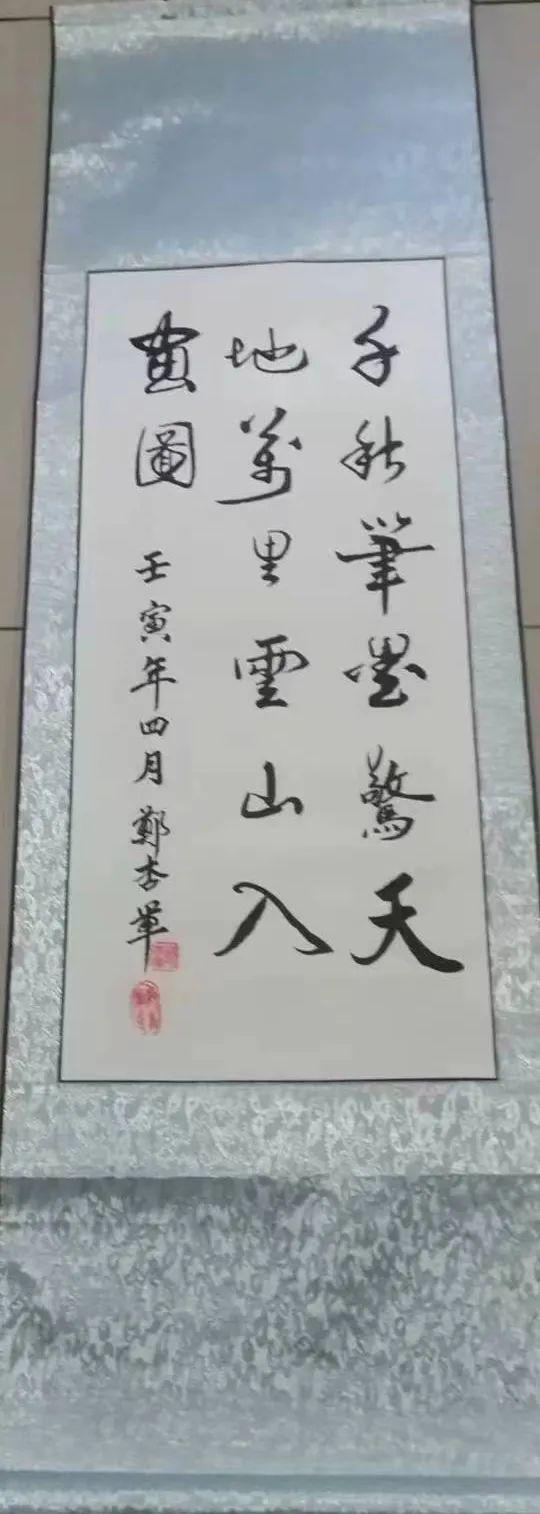 千秋筆墨驚天
地萬里雲山入
畫圖
壬寅年四月鄭杏華